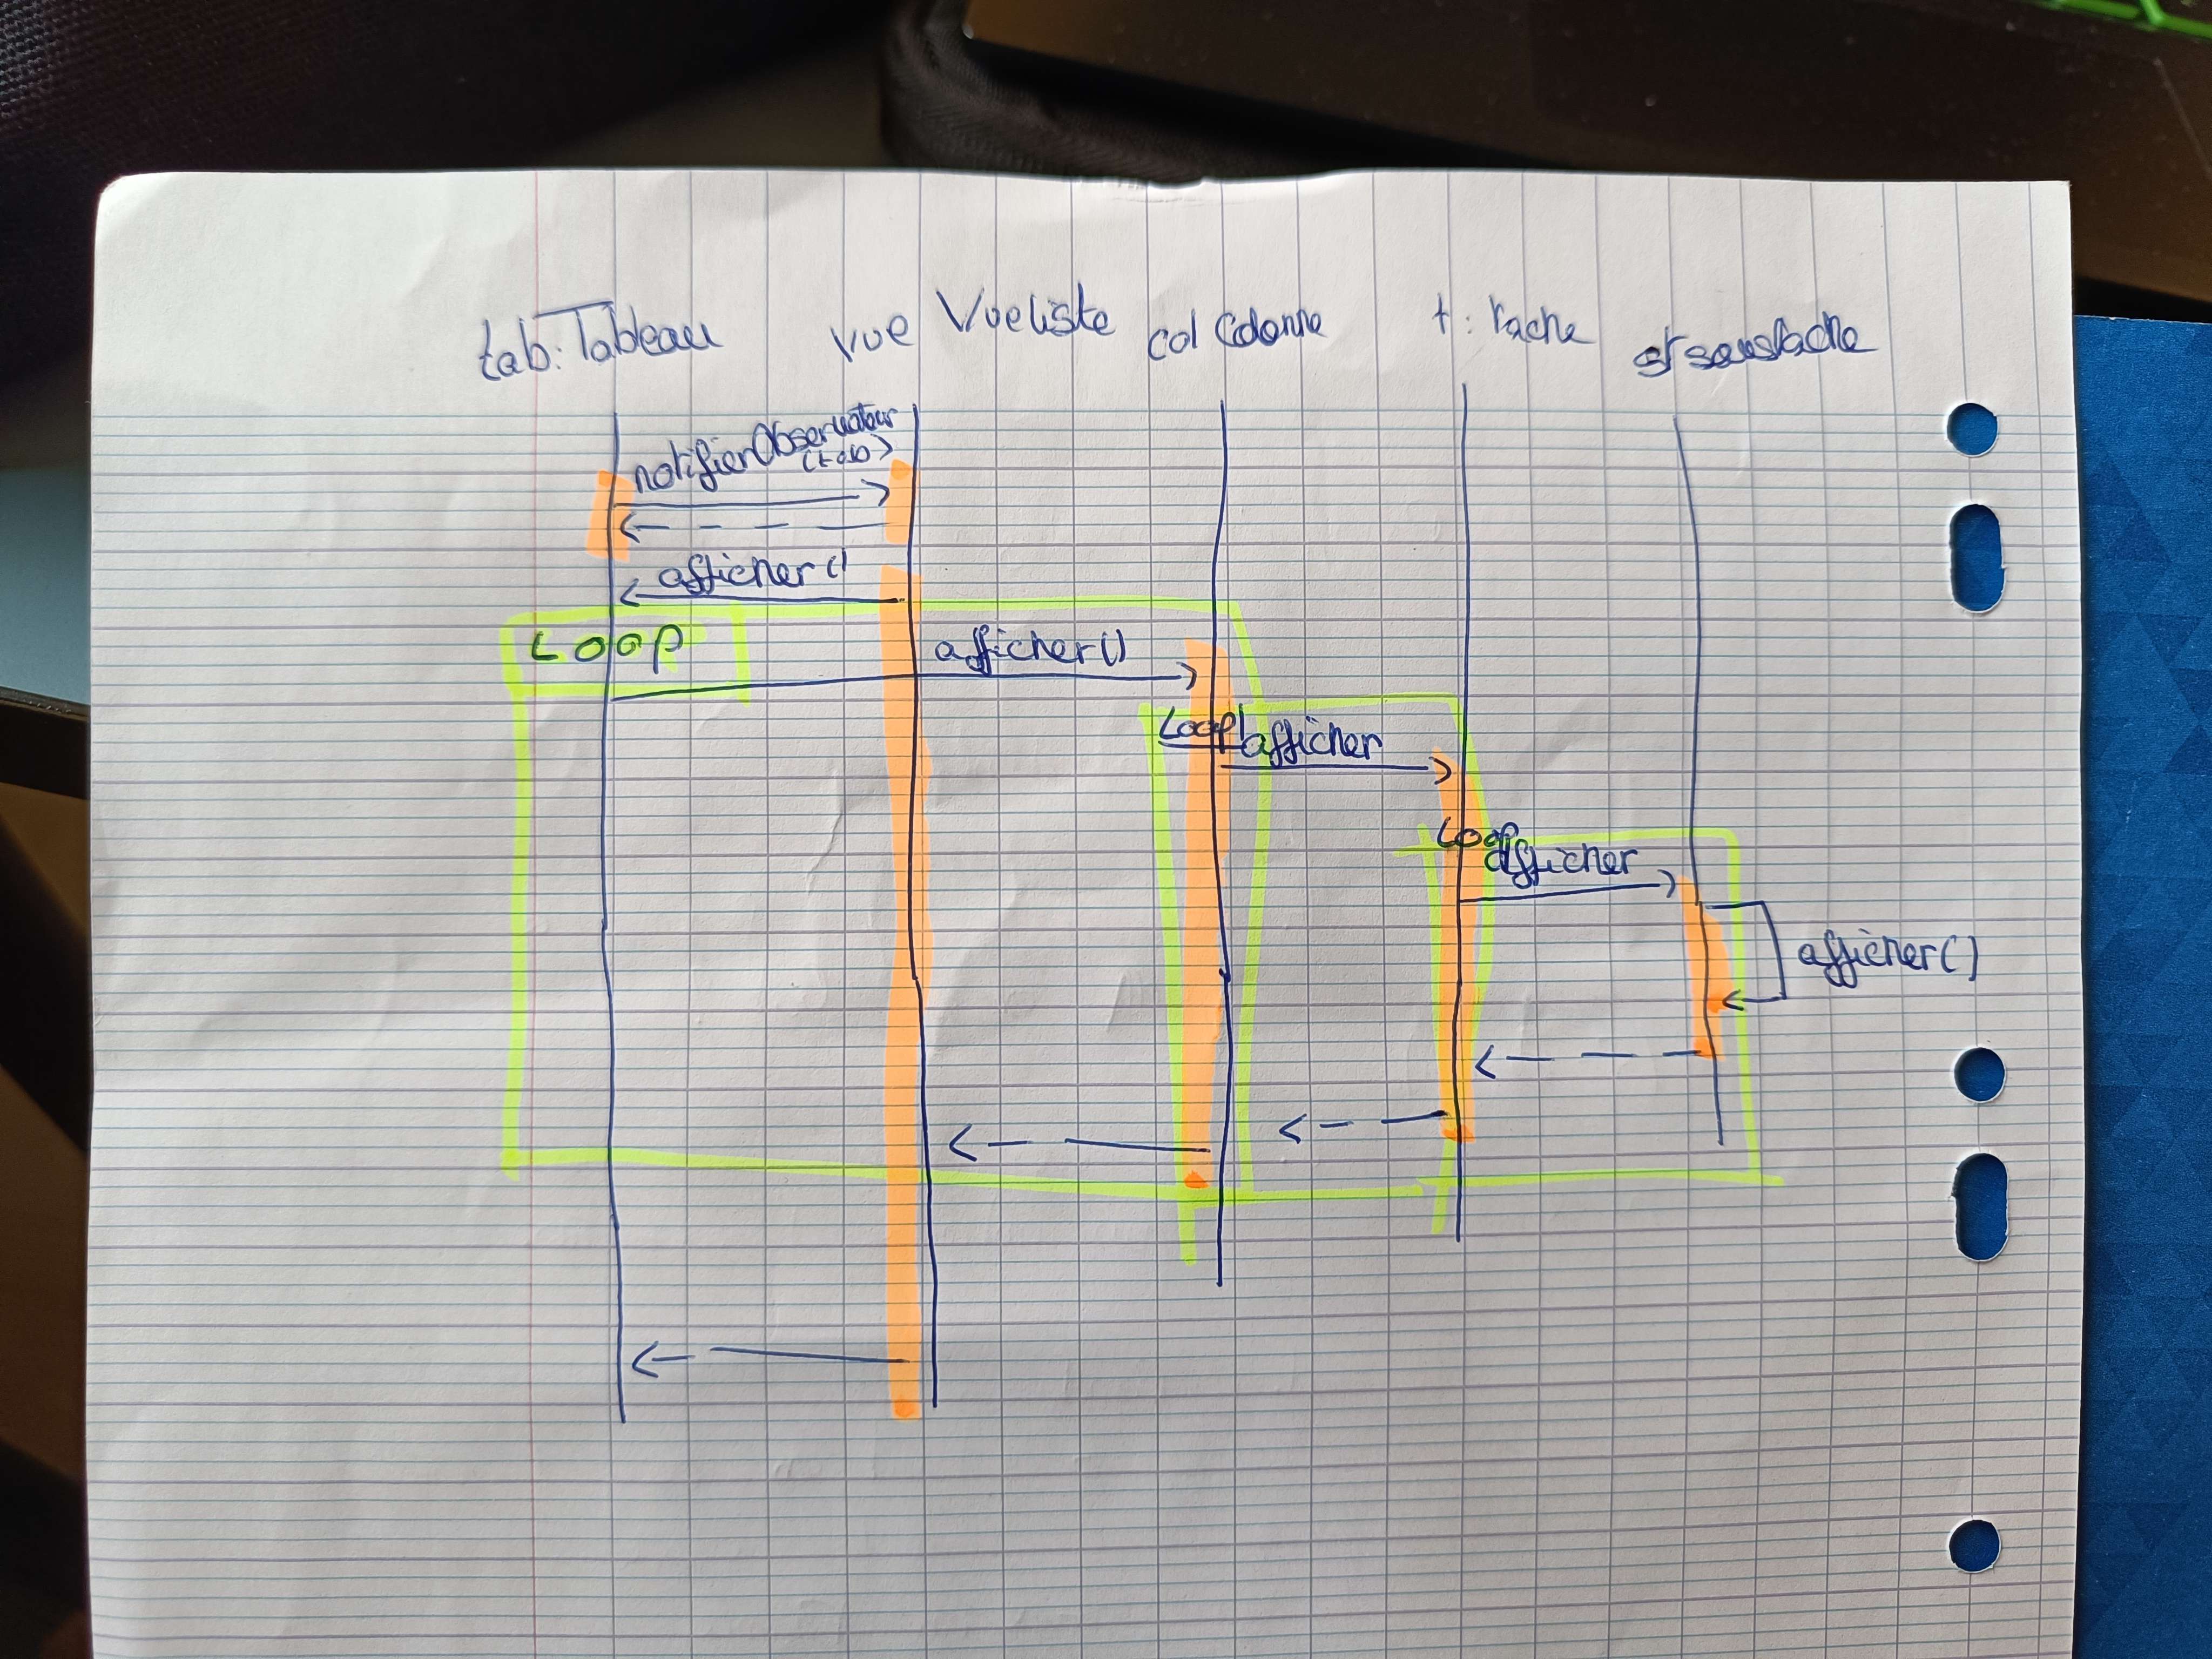 tab: Tableau vue Vueliste col Colonne t: Tache st soustache
notifierObservateur
(tab)
afficher()
Loop afficher()
Loop afficher
Loop
afficher
afficher()